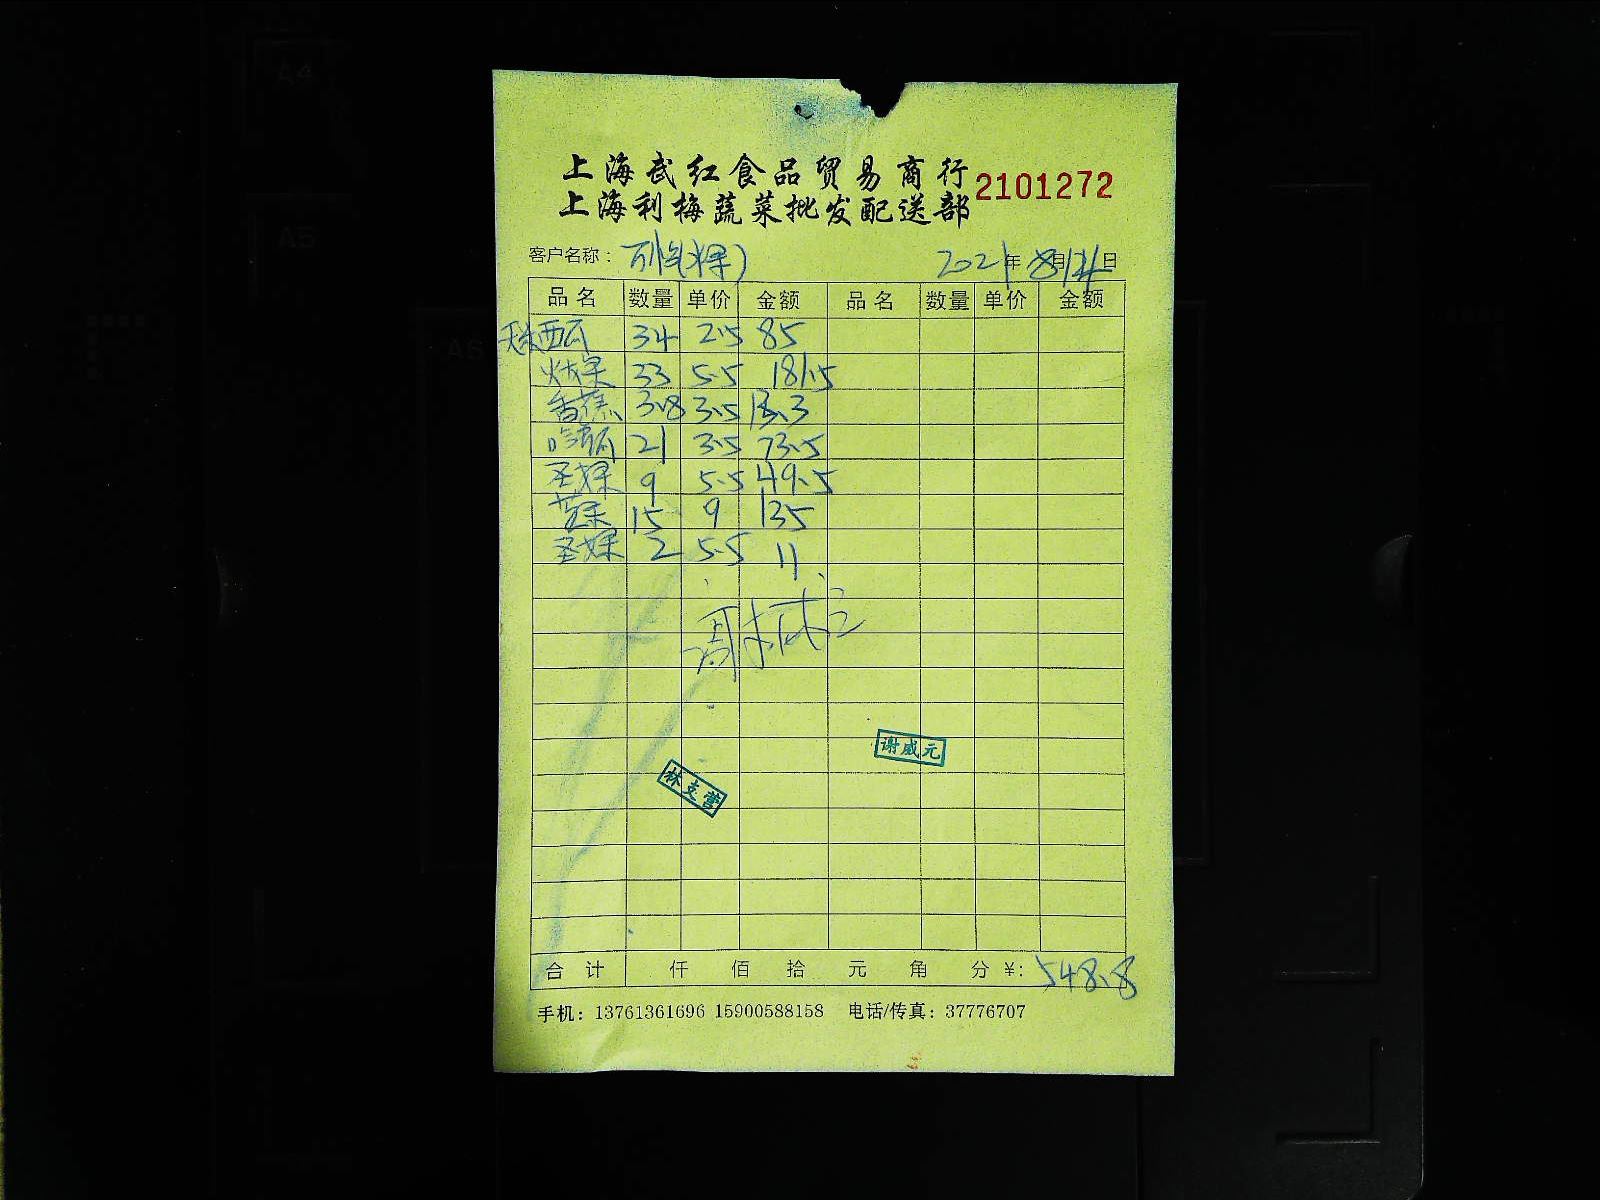 上海武红食品贸易商行
上海利梅蔬菜批发配送部 2101272
客户名称： 2021年8月 日
品名 数量 单价 金额 品名 数量 单价 金额
西瓜 34 2.5 85
33 5.5 181.5
香蕉 3.8 3.5 13.3
哈蜜瓜 21 3.5 73.5
圣女果 9 5.5 49.5
15 9 135
圣女果 2 5.5 11
谢威元
林支营
合计 仟 佰 拾 元 角 分 ¥: 548.8
手机：13761361696 15900588158 电话/传真：37776707